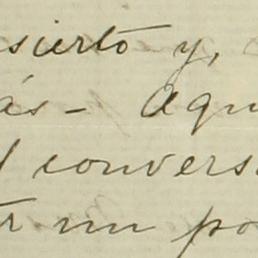 sierto y,
ás - Aqu
l convers
tr un po